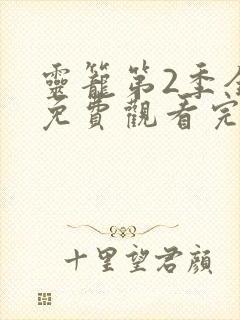 靈籠第2季全
免費觀看完
十里望君顏